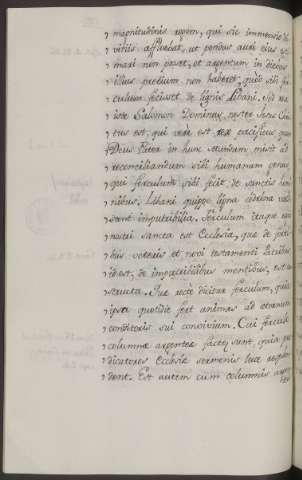 magnitudinis regem, qui sic immensis di
vitiis affluebat, ut pondus auri eius æsti
mari non posset, et argentum in diebus
illius pretium non haberet, quia sibi fer
culum fecisset de lignis Libani. Sed
iste Salomon Dominus noster Jesus Chri
tus est, qui vere est rex pacificus, quem
Deus Pater in hunc mundum misit ad
reconciliandum sibi humanum genus
qui ferculum sibi fecit, de sanctis ho
nibus. Libani quippe ligna cedrina val
sunt imputribilia. Ferculum itaque
nostri sancta est Ecclesia, que de patri
bus veteris et novi testamenti
id est, de imputribilibus mentibus, est con
structa. Que recte dicitur ferculum, quia
ipsa quotidie fert animas ad æternum
conditoris sui convivium. Cui ferculo
columnæ argenteæ factæ sunt, quia præ
dicatores Ecclesiæ sermonis luce resplen
dent. Est autem cum columnis argen